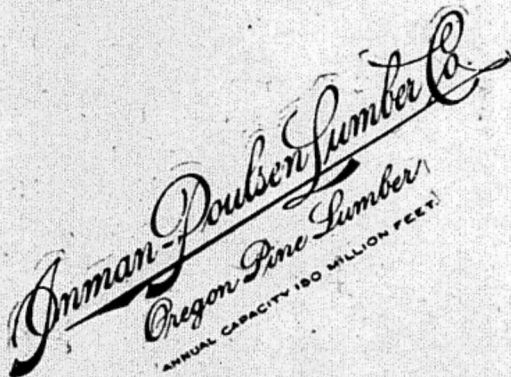 Inman-Poulsen Lumber Co.
Oregon Pine Lumber
ANNUAL CAPACITY 180 MILLION FEET.